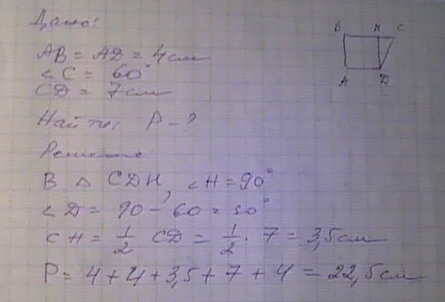 Дано:
B N C
AB = AD = 4 см
∠C = 60°
CD = 7 см
A D
Найти: P - ?
Решение:
В △ CDH, ∠H = 90°
∠D = 90 - 60 = 30°
CH = 1/2 CD = 1/2 · 7 = 3,5 см
P = 4 + 4 + 3,5 + 7 + 4 = 22,5 см